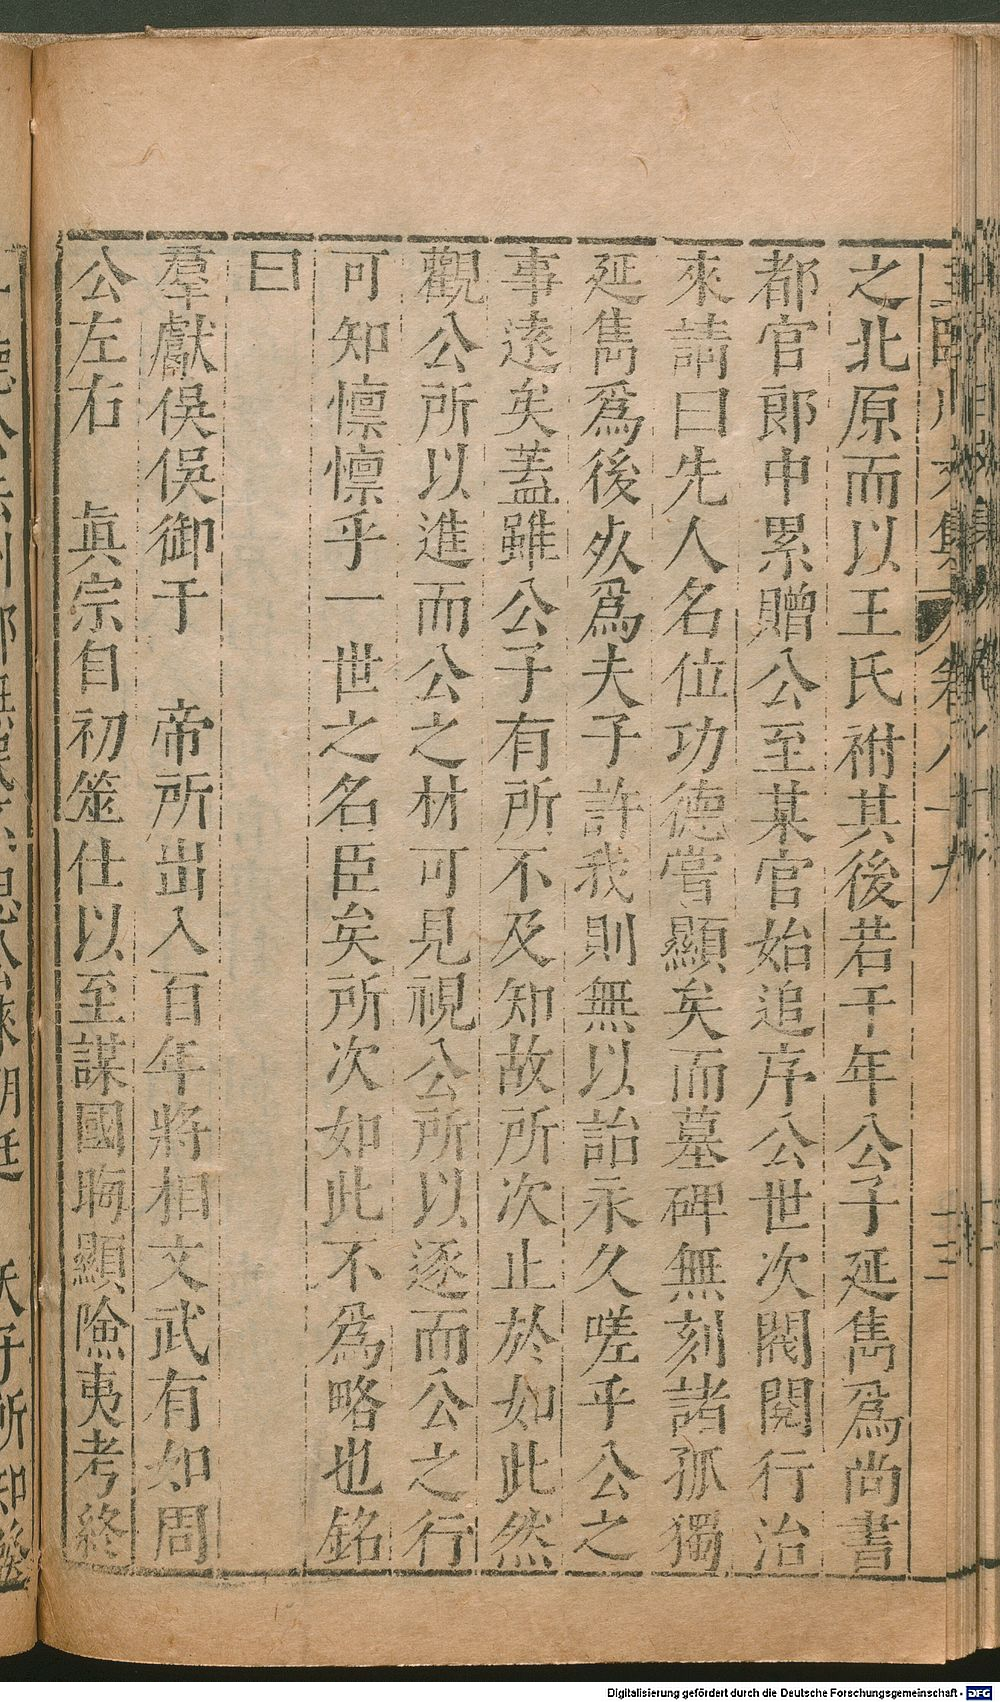 之北原而以王氏祔其後若干年公子延雋爲尚書
都官郎中累贈公至某官始追序公世次閥閱行治
來請曰先人名位功德嘗顯矣而墓碑無刻諸孤獨
延雋爲後夊爲夫子許我則無以詒永久嗟乎公之
事遠矣蓋雖公子有所不及知故所次止於如此然
觀公所以進而公之材可見視公所以逐而公之行
可知懍懍乎一世之名臣矣所次如此不爲略也銘
曰
羣獻俁俁御于 帝所出入百年將相文武有如周
公左右 眞宗自初筮仕以至謀國晦顯險夷考終
Digitalisierung gefördert durch die Deutsche Forschungsgemeinschaft - DFG